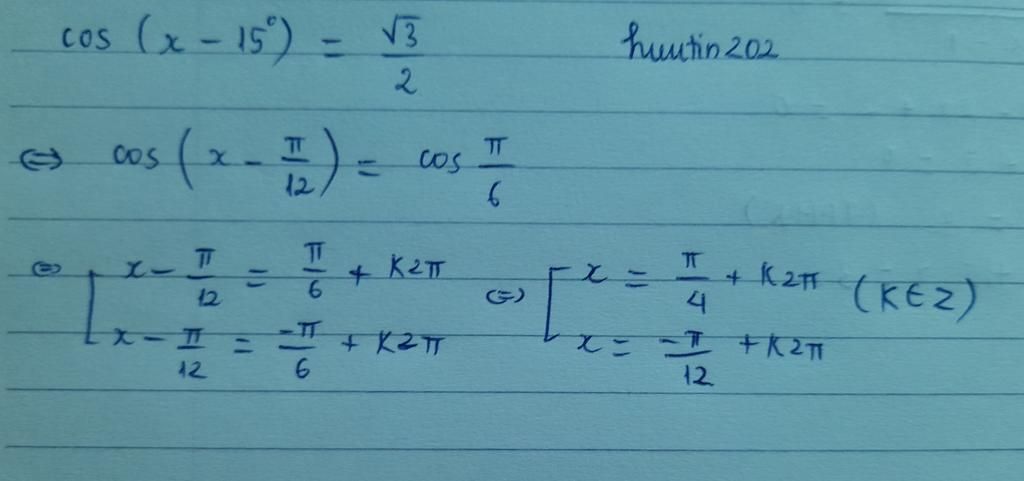 cos (x - 15°) = √3/2 huutin202
⇔ cos (x - π/12) = cos π/6
⇔ [ x - π/12 = π/6 + k2π ⇔ [ x = π/4 + k2π (k ∈ Z)
x - π/12 = -π/6 + k2π x = -π/12 + k2π